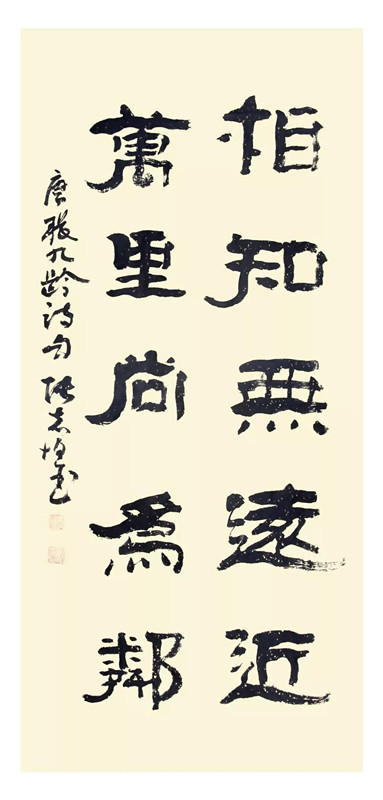 相知無遠近
萬里尚為鄰
唐張九齡詩句 張志書